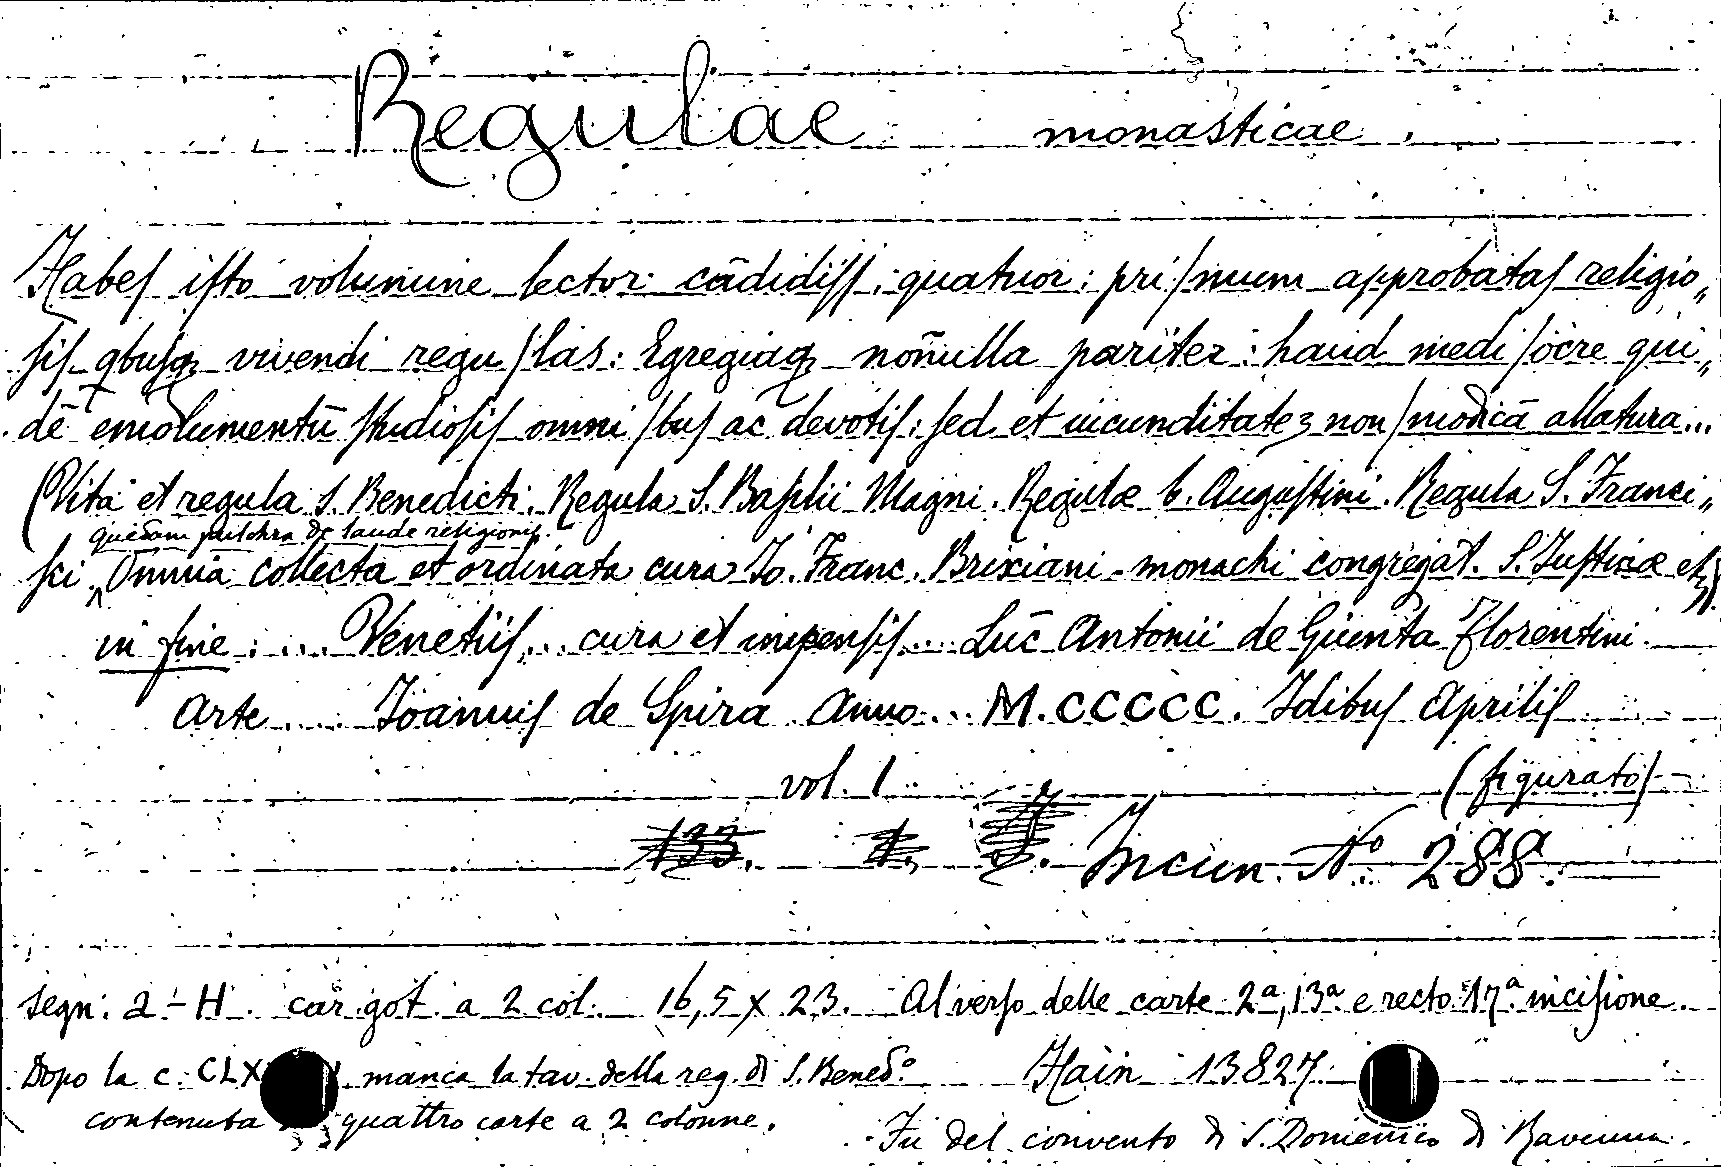 Regulae monasticae.
Habes isto volumine lector cādidiss. quatuor: pri/mum approbatas religio„
sis qbusq; vivendi regu/las: Egregiaq; noñulla pariter: haud medi/ocre qui„
dē emolumentū studiosis omni/bus ac devotis: sed et iucunditatez non/modicā allatura...
(Vita et regula S. Benedicti. Regula S. Basilii Magni. Regula b. Augustini. Regula S. Franci„
quedam pulchra de laude religionis.
sci, Omnia collecta et ordinata cura Jo. Franc. Brixiani monachi congregat. S. Justinae etc).
in fine: ... Venetiis... cura et inpensis... Luc̄ Antonii de Giunta Florentini
arte .... Joannis de Spira Anno... M.CCCCC. Idibus Aprilis
vol. 1 (figurato)
133. 1. Incun. No. 288.
segn: a - H. car got. a 2 col. 16,5 x 23. Al verso delle carte 2a, 13a e recto 17a incisione.
Dopo la c. CLX manca la tav. della reg. di S. Bened.o Hain 13827.
contenuta quattro carte a 2 colonne.
Fu del convento di S. Domenico di Ravenna.